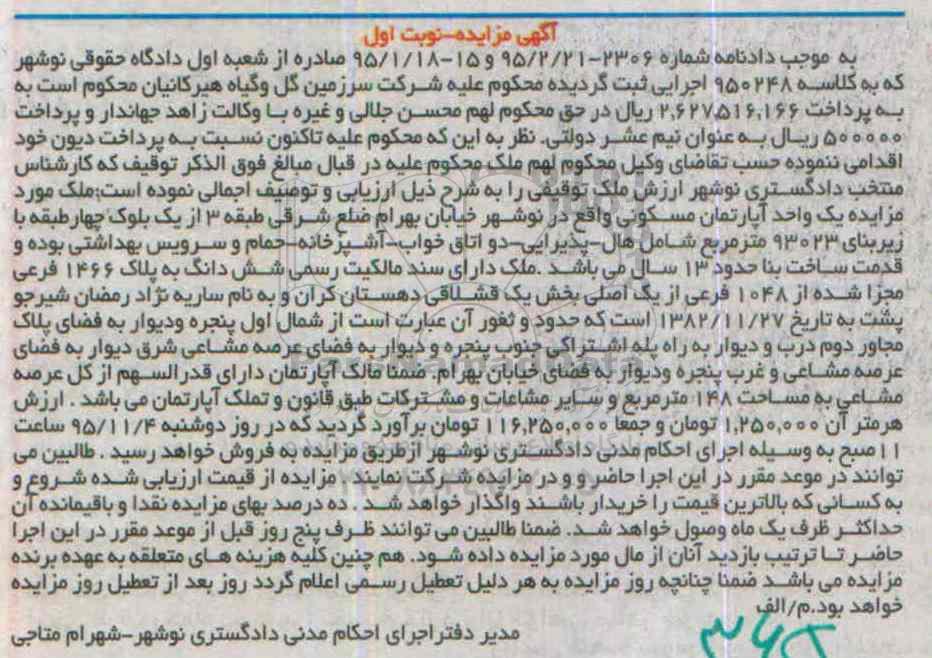 آگهی مزایده-نوبت اول
به موجب دادنامه شماره ۲۳۰۶-۹۵/۲/۲۱ و ۱۵-۹۵/۱/۱۸ صادره از شعبه اول دادگاه حقوقی نوشهر
که به کلاسه ۹۵۰۲۴۸ اجرایی ثبت گردیده محکوم علیه شرکت سرزمین گل وگیاه هیرکانیان محکوم است به
به پرداخت ۲,۶۲۷,۵۱۶,۱۶۶ ریال در حق محکوم لهم محسن جلالی و غیره با وکالت زاهد جهاندار و پرداخت
۵۰۰۰۰۰ ریال به عنوان نیم عشر دولتی. نظر به این که محکوم علیه تاکنون نسبت به پرداخت دیون خود
اقدامی ننموده حسب تقاضای وکیل محکوم لهم ملک محکوم علیه در قبال مبالغ فوق الذکر توقیف که کارشناس
منتخب دادگستری نوشهر ارزش ملک توقیفی را به شرح ذیل ارزیابی و توصیف اجمالی نموده است:ملک مورد
مزایده یک واحد آپارتمان مسکونی واقع در نوشهر خیابان بهرام ضلع شرقی طبقه ۳ از یک بلوک چهارطبقه با
زیربنای ۹۳۰۲۳ مترمربع شامل هال-پذیرایی-دو اتاق خواب-آشپزخانه-حمام و سرویس بهداشتی بوده و
قدمت ساخت بنا حدود ۱۳ سال می باشد .ملک دارای سند مالکیت رسمی شش دانگ به پلاک ۱۴۶۶ فرعی
مجزا شده از ۱۰۴۸ فرعی از یک اصلی بخش یک قشلاقی دهستان کران و به نام ساریه نژاد رمضان شیرجو
پشت به تاریخ ۱۳۸۲/۱۱/۲۷ است که حدود و ثغور آن عبارت است از شمال اول پنجره ودیوار به فضای پلاک
مجاور دوم درب و دیوار به راه پله اشتراکی جنوب پنجره و دیوار به فضای عرصه مشاعی شرق دیوار به فضای
عرصه مشاعی و غرب پنجره ودیوار به فضای خیابان بهرام. ضمنا مالک آپارتمان دارای قدرالسهم از کل عرصه
مشاعی به مساحت ۱۴۸ مترمربع و سایر مشاعات و مشترکات طبق قانون و تملک آپارتمان می باشد . ارزش
هرمتر آن ۱,۲۵۰,۰۰۰ تومان و جمعا ۱۱۶,۲۵۰,۰۰۰ تومان برآورد گردید که در روز دوشنبه ۹۵/۱۱/۴ ساعت
۱۱صبح به وسیله اجرای احکام مدنی دادگستری نوشهر ازطریق مزایده به فروش خواهد رسید . طالبین می
توانند در موعد مقرر در این اجرا حاضر و و در مزایده شرکت نمایند . مزایده از قیمت ارزیابی شده شروع و
به کسانی که بالاترین قیمت را خریدار باشند واگذار خواهد شد . ده درصد بهای مزایده نقدا و باقیمانده آن
حداکثر ظرف یک ماه وصول خواهد شد. ضمنا طالبین می توانند ظرف پنج روز قبل از موعد مقرر در این اجرا
حاضر تا ترتیب بازدید آنان از مال مورد مزایده داده شود. هم چنین کلیه هزینه های متعلقه به عهده برنده
مزایده می باشد ضمنا چنانچه روز مزایده به هر دلیل تعطیل رسمی اعلام گردد روز بعد از تعطیل روز مزایده
خواهد بود.م/الف
مدیر دفتراجرای احکام مدنی دادگستری نوشهر-شهرام متاجی